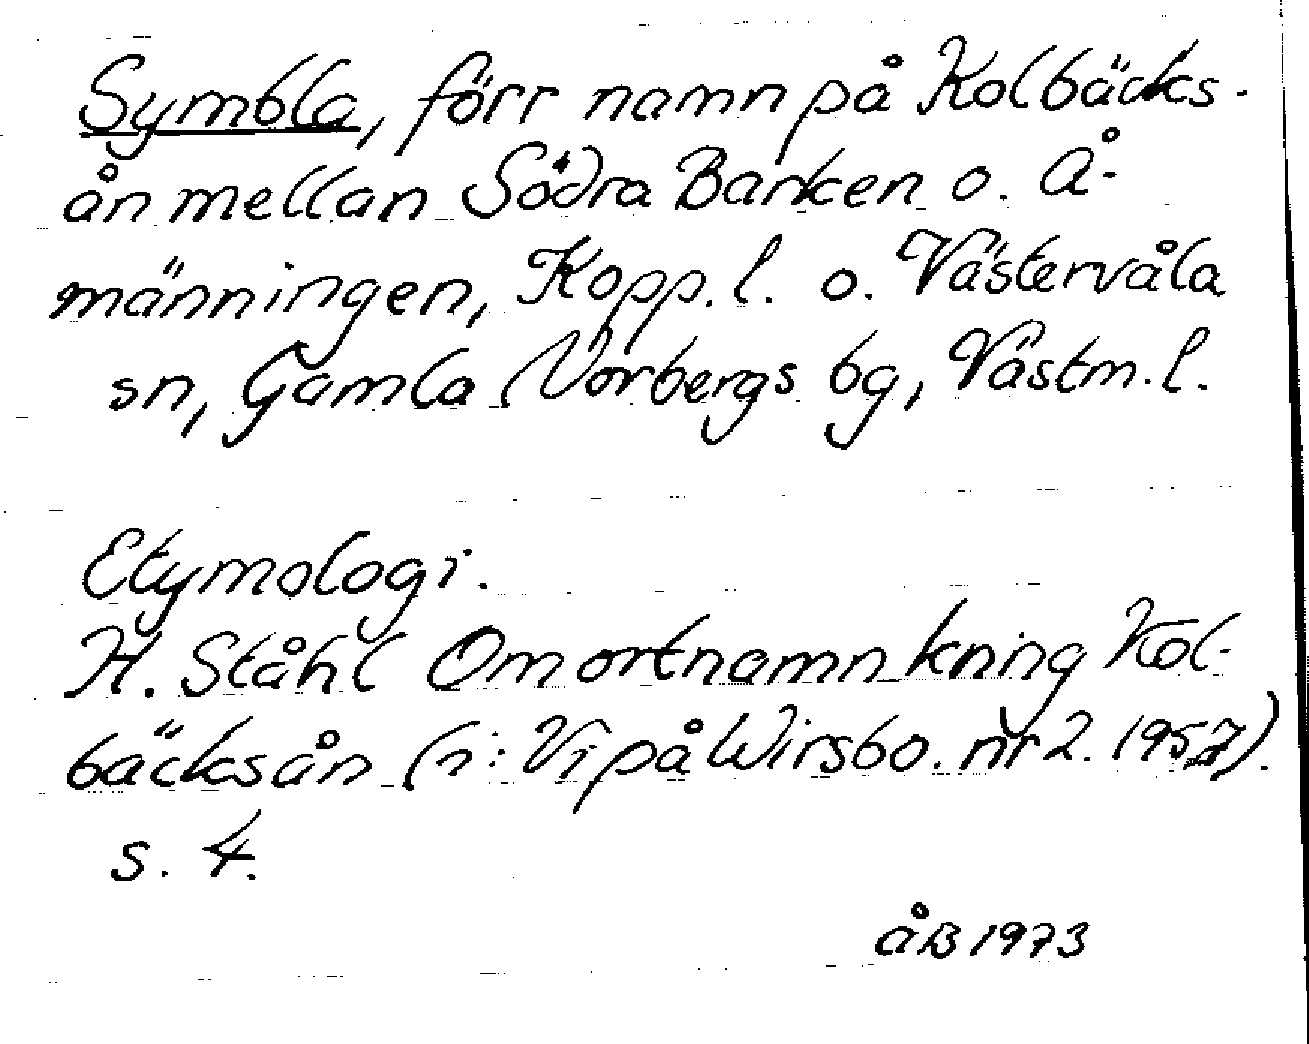 Symbla, förr namn på Kolbäcks-
ån mellan Södra Barken o. Å-
männingen, Kopp. l. o. Västervåla
sn, Gamla Norbergs bg, Västm. l.
Etymologi.
H. Ståhl Om ortnamn kning Kol-
bäcksån (i: Vi på Wirsbo. nr 2. 1957).
s. 4.
ÅB 1973